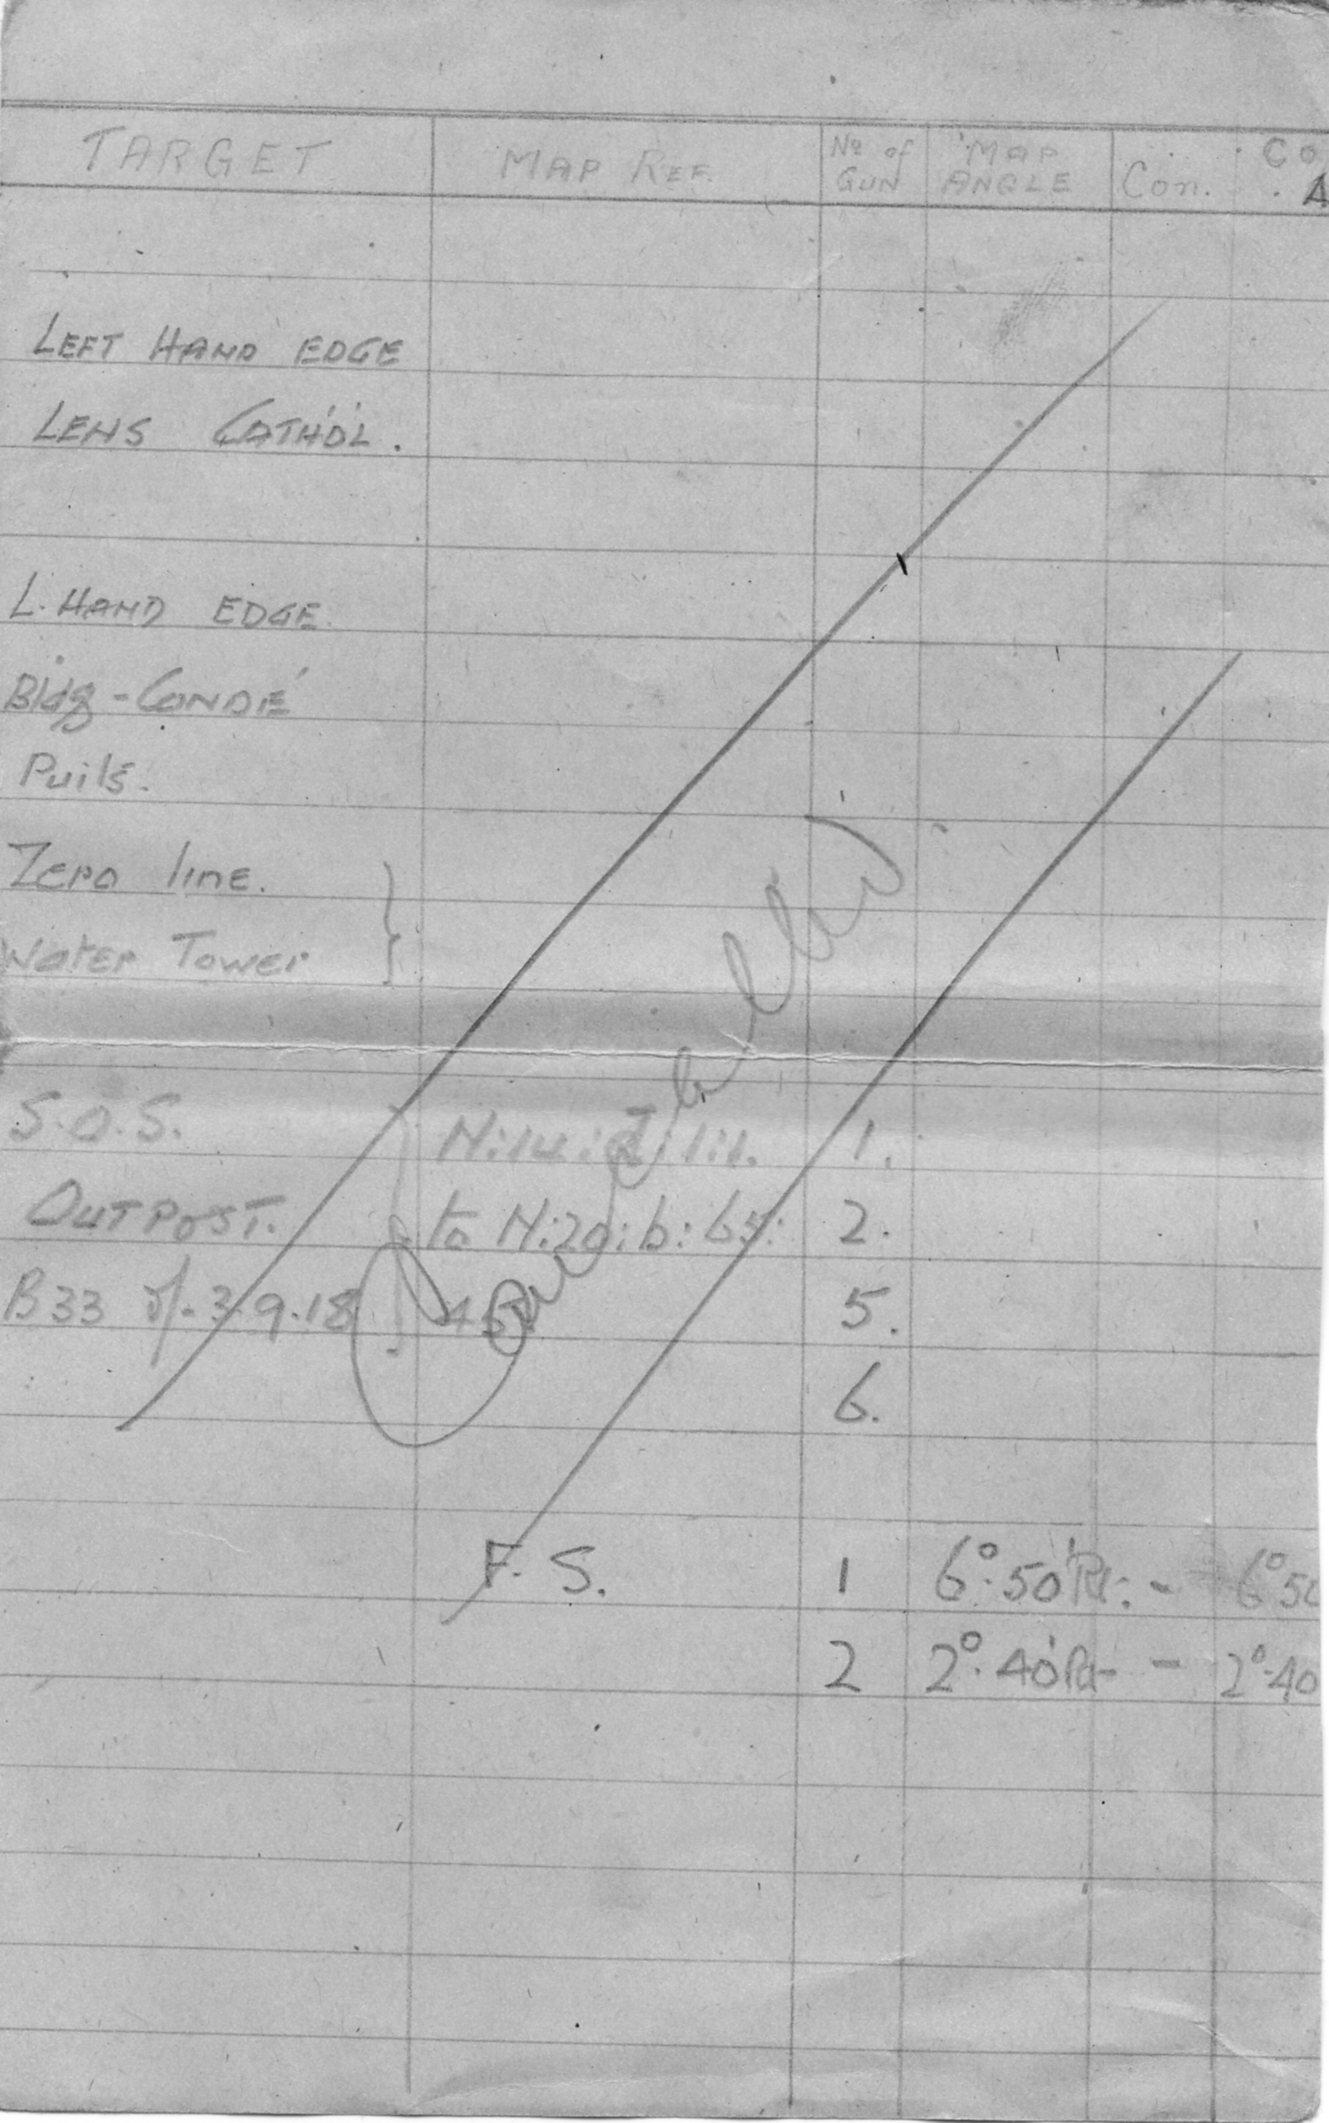 TARGET MAP REF. No of GUN MAP ANGLE Con. Co A
LEFT HAND EDGE
LENS CATH'D'L.
L. HAND EDGE
Bldg - CONDÉ
Puits.
Zero line.
Water Tower
S.O.S. 1.
OUTPOST. to N:20:b:65: 2.
B33 of 3.9.18 5.
6.
Cancelled
F. S. 1 6°.50' Rt. - 6°50
2 2°.40' Rt - 2°.40